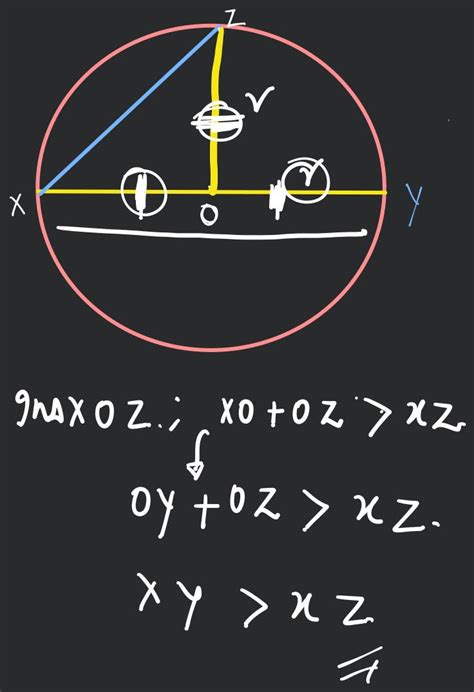 Z
r
r
X
O
Y
In △XOZ; XO+OZ > XZ
OY+OZ > XZ.
XY > XZ